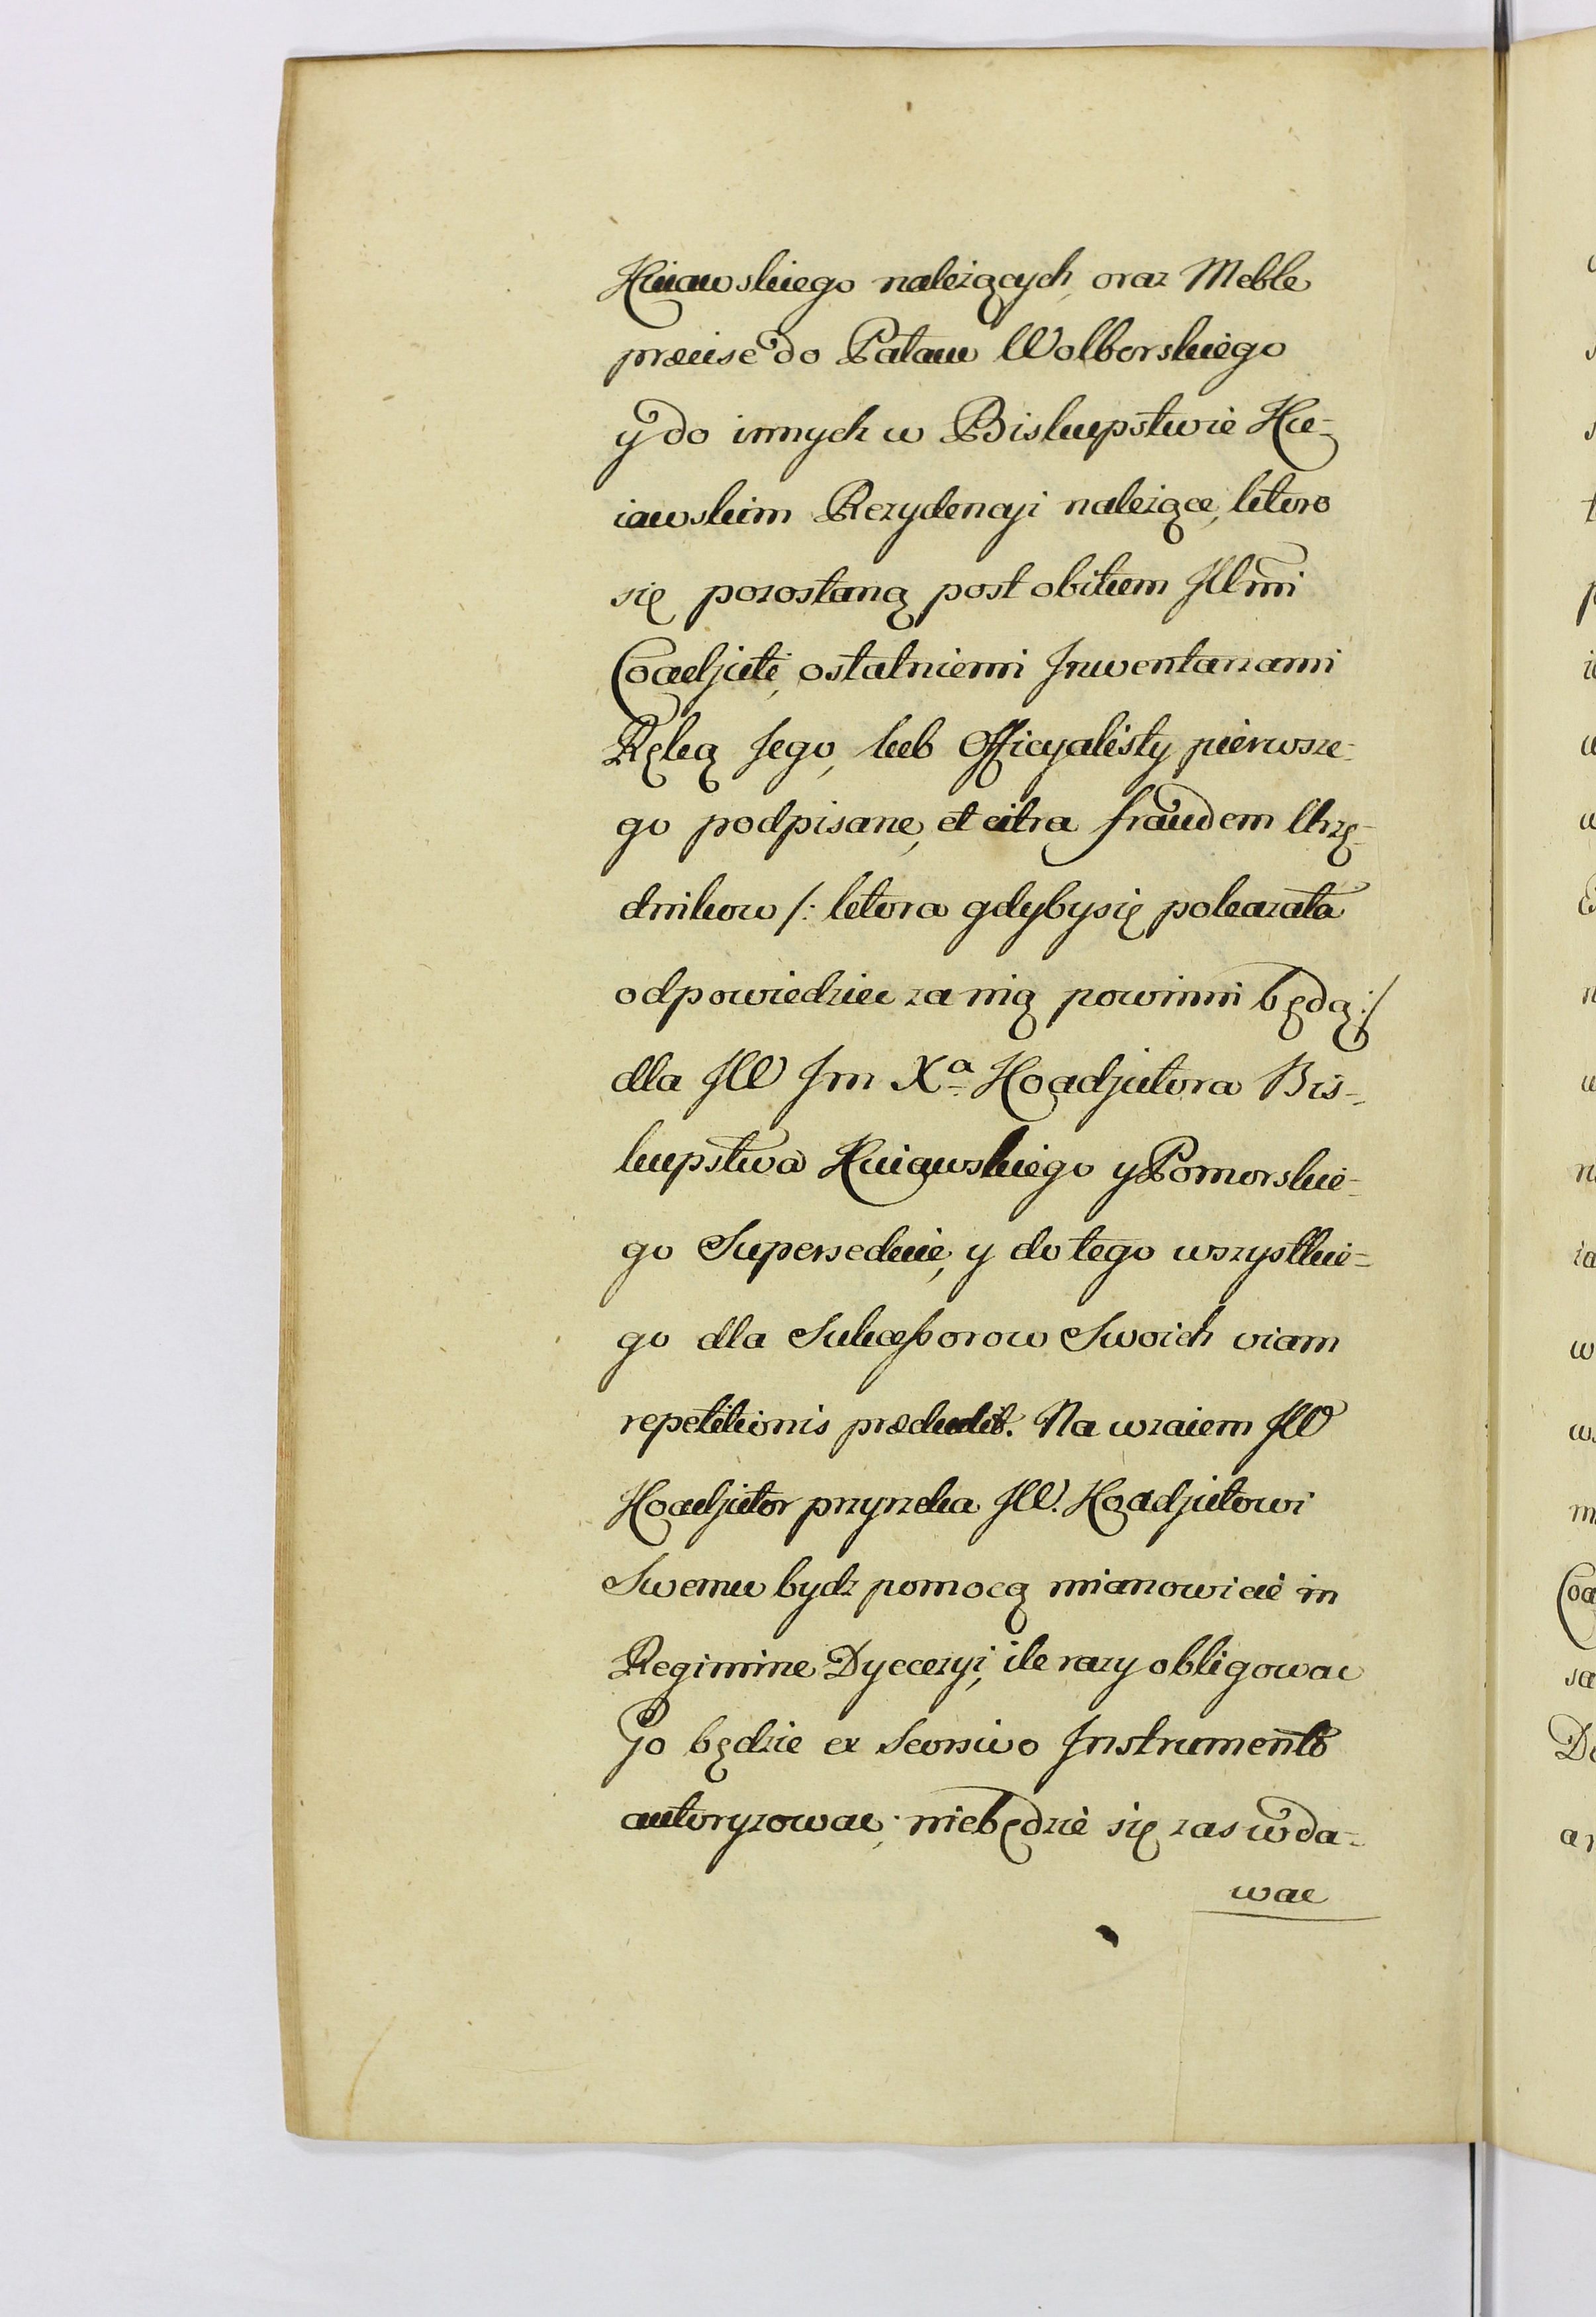 Kuiawskiego należących, oraz Meble
præcise do Pałacu Wolborskiego
y do innych w Biskupstwie Ku-
iawskim Rezydencyi należące, ktore
się pozostaną post obitum Jllmi
Coadjuti, ostatniemi Jnwentarzami
Ręką Jego, lub Officyalisty pierwsze-
go podpisane, et citra fraudem Urzę-
dnikow /: ktora gdyby się pokazała
odpowiedziec za nią powinni będą :/
dla JW Jm Xa Koadjutora Bis-
kupstwa Kuiawskiego y Pomorskie-
go Superseduie, y do tego wszystkie-
go dla Sukcessorow Swoich viam
repetitionis præcludit. Na wzaiem JW
Koadjutor przyrzeka JW. Koadjutowi
Swemu bydz pomocą mianowicie in
Regimine Dyecezyi, ile razy obligowac
Go będzie ex Seorsivo Jnstrumento
autoryzowac; niebędzie się zas wda-
wac